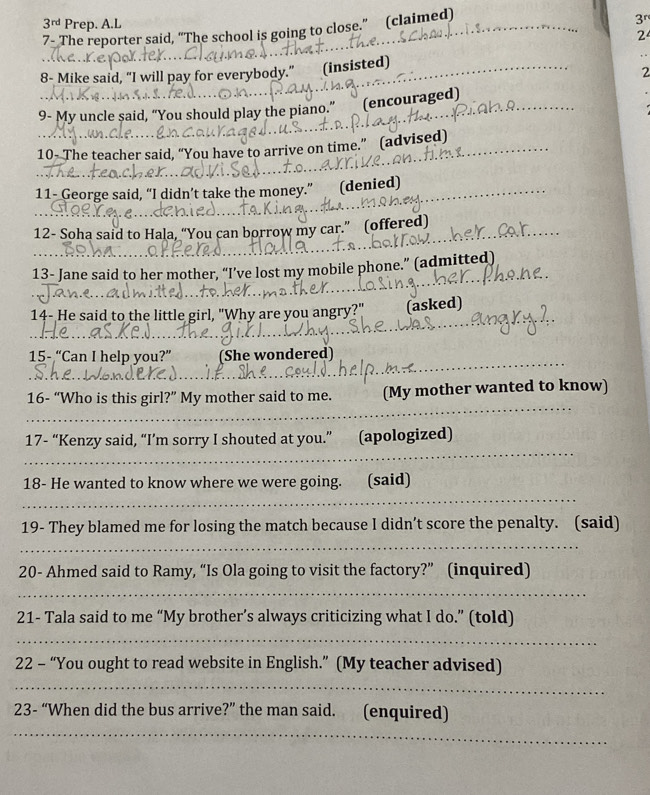 3rd Prep. A.L
3r
7- The reporter said, “The school is going to close.” (claimed)
2
The reporter claimed that the school is
8- Mike said, “I will pay for everybody.” (insisted)
2
Mike insisted on paying
9- My uncle said, “You should play the piano.” (encouraged)
My uncle encouraged us to play the piano
10- The teacher said, “You have to arrive on time.” (advised)
The teacher advised to arrive on time
11- George said, “I didn’t take the money.” (denied)
denied taking the money
12- Soha said to Hala, “You can borrow my car.” (offered)
Soha offered Halla to borrow her car
13- Jane said to her mother, “I’ve lost my mobile phone.” (admitted)
Jane admitted to her mother losing her phone
14- He said to the little girl, "Why are you angry?" (asked)
He asked the girl why she was angry?
15- “Can I help you?” (She wondered)
She wondered if she could help me
16- “Who is this girl?” My mother said to me. (My mother wanted to know)
17- “Kenzy said, “I’m sorry I shouted at you.” (apologized)
18- He wanted to know where we were going. (said)
19- They blamed me for losing the match because I didn’t score the penalty. (said)
20- Ahmed said to Ramy, “Is Ola going to visit the factory?” (inquired)
21- Tala said to me “My brother’s always criticizing what I do.” (told)
22 – “You ought to read website in English.” (My teacher advised)
23- “When did the bus arrive?” the man said. (enquired)